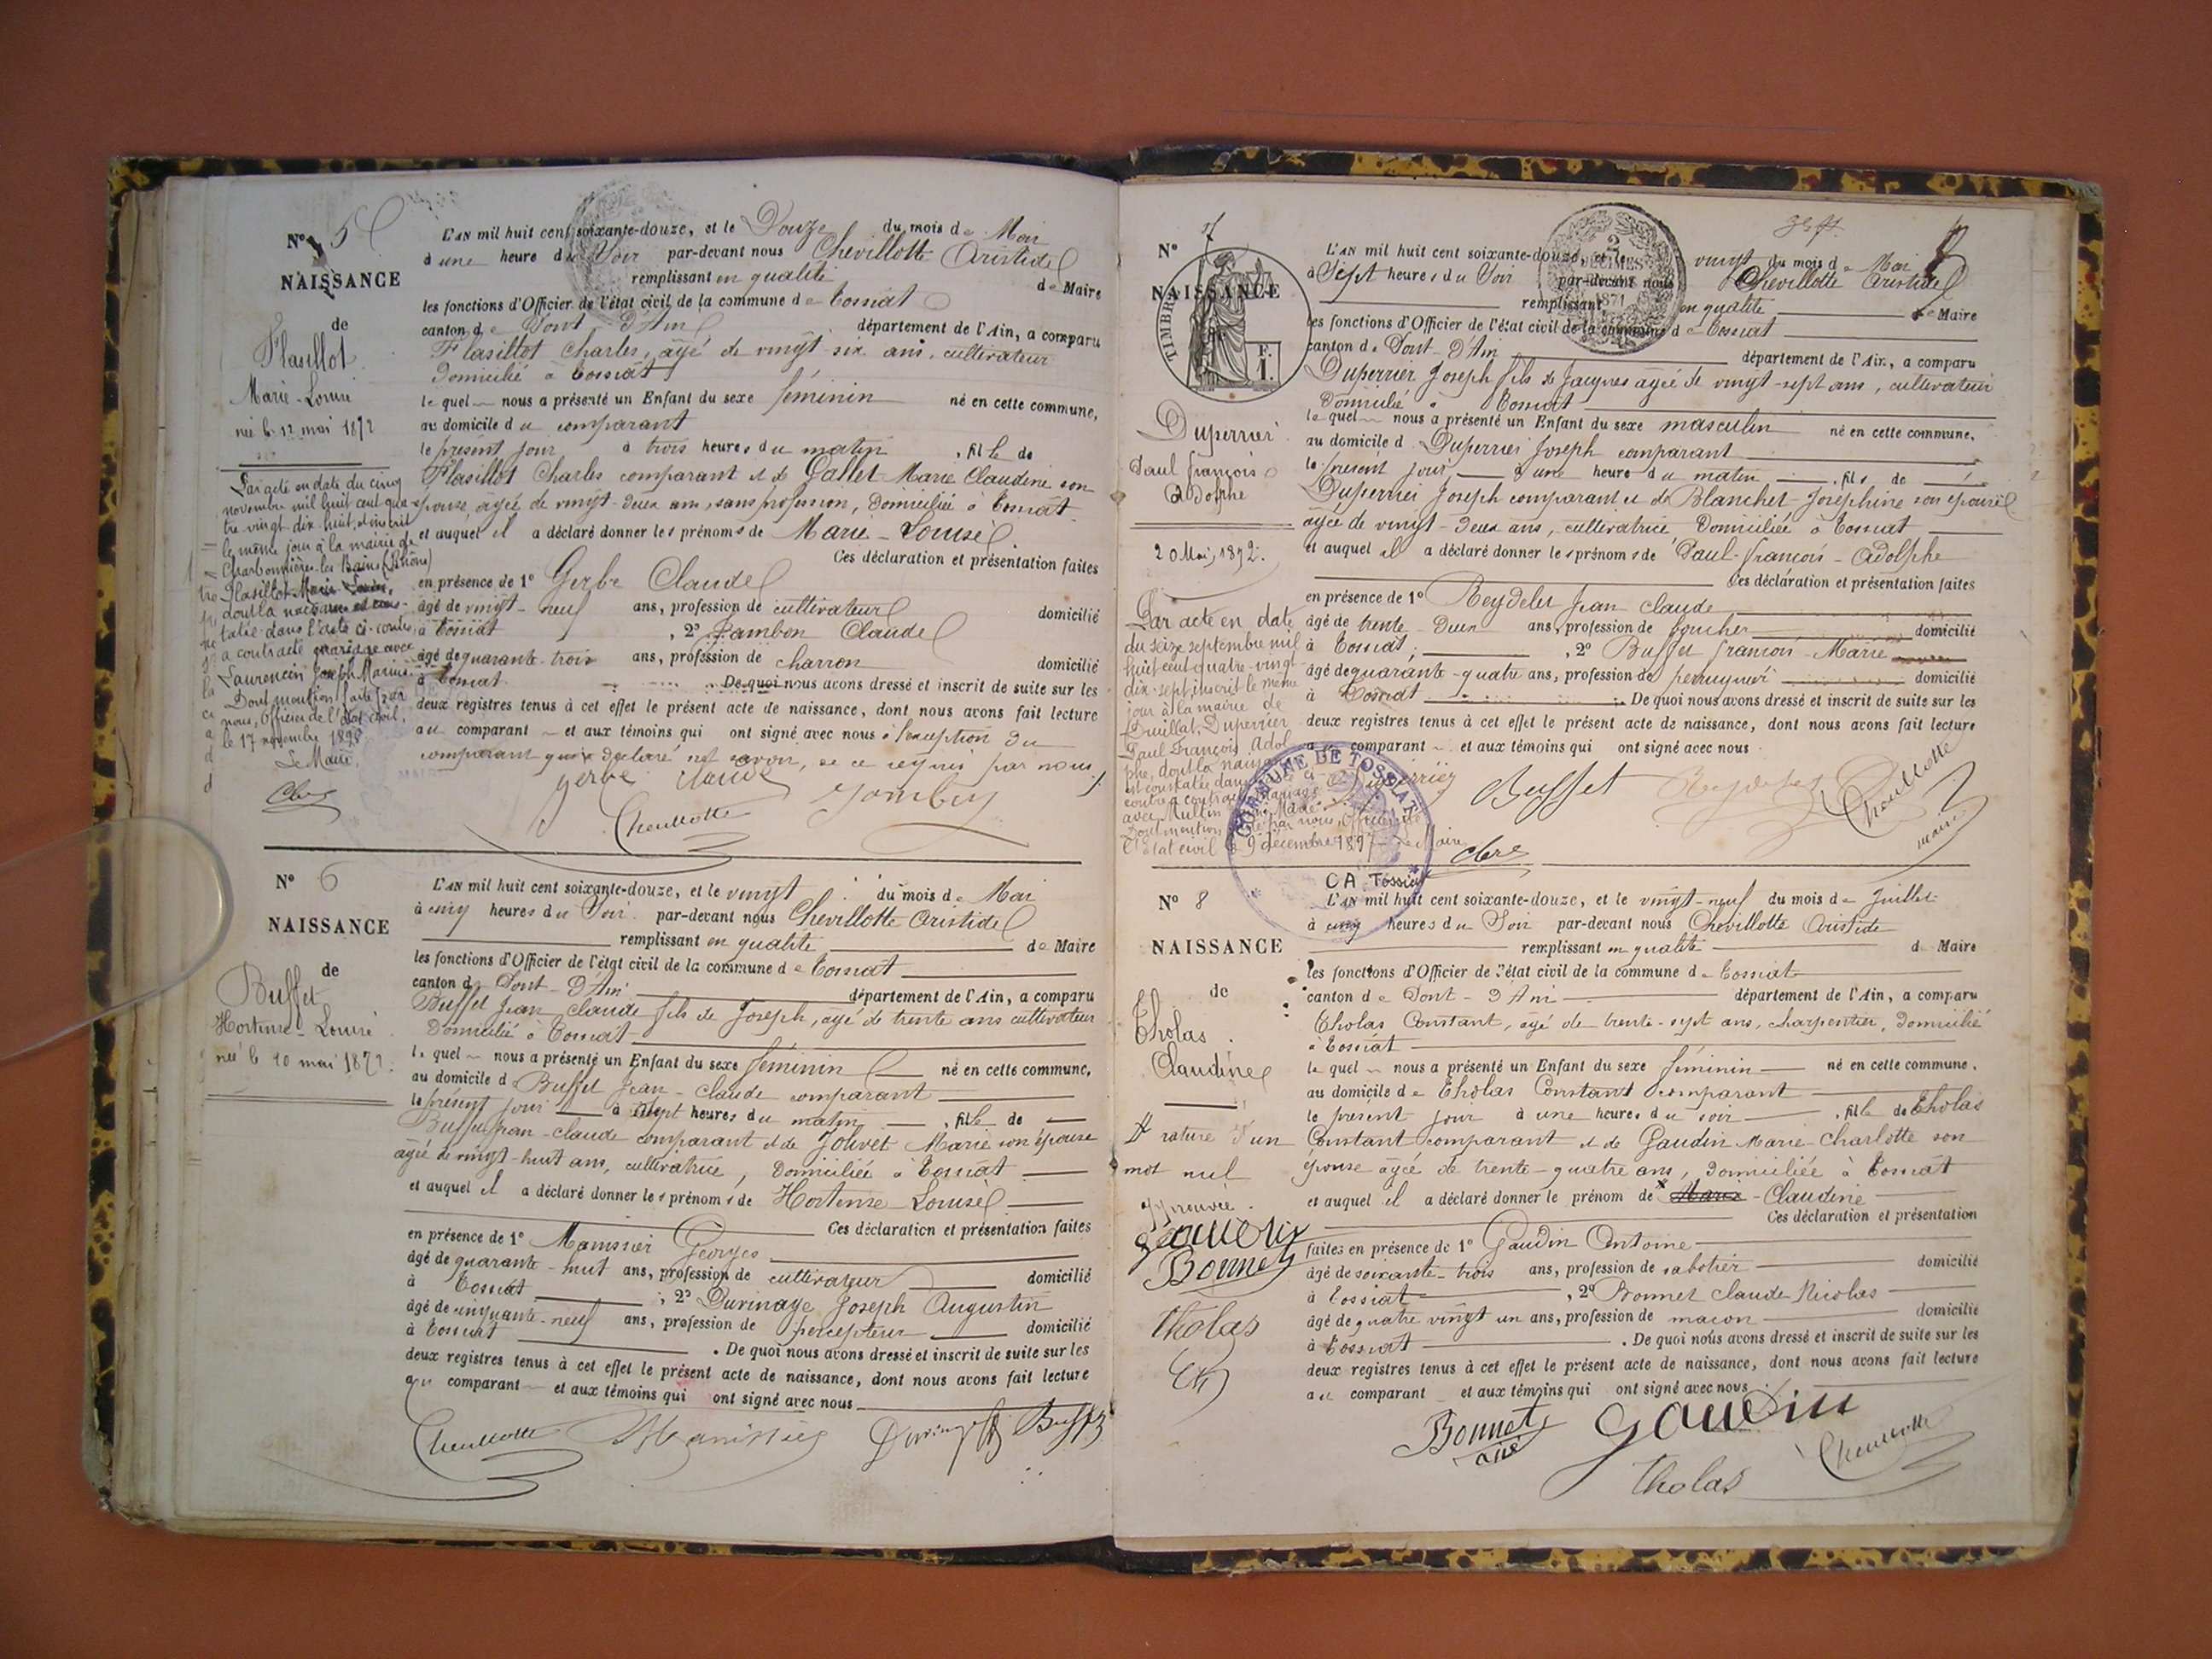 N° 5
NAISSANCE
de
Flasillot
Marie-Louise
née le 12 mai 1872
Par acte en date du cinq
novembre mil huit cent qua-
tre vingt dix huit, et inscrit
le même jour à la mairie de
Charbonnières les Bains (Rhône)
Flasillot Marie Louise,
dont la naissance est cons-
tatée dans l'acte ci-contre,
a contracté mariage avec
Laurencin Joseph Marius.
Dont mention faite par
nous, Officier de l'état civil,
le 17 novembre 1898
Le Maire,
L'AN mil huit cent soixante-douze, et le Douze du mois de Mai
à une heure du Soir par-devant nous Chevillotte Aristide
remplissant en qualité de Maire
les fonctions d'Officier de l'état civil de la commune de Tossiat
canton de Pont-d'Ain département de l'Ain, a comparu
Flasillot Charles, âgé de vingt-six ans, cultivateur
Domicilié à Tossiat
lequel nous a présenté un Enfant du sexe féminin né en cette commune,
au domicile du comparant
le présent jour à trois heures du matin, fille de
Flasillot Charles comparant et de Gallet Marie Claudine son
épouse, âgée de vingt-deux ans, sans profession, Domiciliée à Tossiat
et auquel il a déclaré donner les prénoms de Marie-Louise
Ces déclaration et présentation faites
en présence de 1° Gerbe Claude
âgé de vingt-neuf ans, profession de cultivateur domicilié
à Tossiat, 2° Jambon Claude
âgé de quarante-trois ans, profession de charron domicilié
à Tossiat. De quoi nous avons dressé et inscrit de suite sur les
deux registres tenus à cet effet le présent acte de naissance, dont nous avons fait lecture
au comparant et aux témoins qui ont signé avec nous à l'exception du
comparant qui a déclaré ne savoir, de ce requis par nous.
gerbe claude
Chevillotte
N° 6
NAISSANCE
de
Buffet
Hortense-Louise
née le 20 mai 1872.
L'AN mil huit cent soixante-douze, et le vingt du mois de Mai
à cinq heures du Soir par-devant nous Chevillotte Aristide
remplissant en qualité de Maire
les fonctions d'Officier de l'état civil de la commune de Tossiat
canton de Pont-d'Ain département de l'Ain, a comparu
Buffet Jean claude fils de Joseph, âgé de trente ans cultivateur
Domicilié à Tossiat
lequel nous a présenté un Enfant du sexe féminin né en cette commune,
au domicile de Buffet Jean-claude comparant
le présent jour à sept heures du matin, fille de
Buffet Jean-claude comparant et de Jolivet Marie son épouse
âgée de vingt-huit ans, cultivatrice, Domiciliée à Tossiat
et auquel il a déclaré donner les prénoms de Hortense Louise
Ces déclaration et présentation faites
en présence de 1° Manissier Georges
âgé de quarante-huit ans, profession de cultivateur domicilié
à Tossiat, 2° Durinage Joseph Augustin
âgé de cinquante-neuf ans, profession de percepteur domicilié
à Tossiat. De quoi nous avons dressé et inscrit de suite sur les
deux registres tenus à cet effet le présent acte de naissance, dont nous avons fait lecture
au comparant et aux témoins qui ont signé avec nous
Chevillotte Manissier Buffet
N° 7
NAISSANCE
TIMBRE
F. 1.
2
DÉCIMES
1871
Duperrier
Paul françois
Adolphe
20 Mai 1872.
Par acte en date
du seize septembre mil
huit cent quatre-vingt
dix-sept inscrit le même
jour à la mairie de
Druillat, Duperrier
Paul François Adol
phe, dont la
est constatée dans
contre a contracté mariage
avec Mullin Marie
Dont mention par nous, Officier de
l'état civil le 9 décembre 1897 Le Maire
L'AN mil huit cent soixante-douze, et le vingt du mois de Mai
à Sept heures du Soir par-devant nous Chevillotte Aristide
remplissant en qualité de Maire
les fonctions d'Officier de l'état civil de la commune de Tossiat
canton de Pont-d'Ain département de l'Ain, a comparu
Duperrier Joseph fils de Jacques âgé de vingt-sept ans, cultivateur
Domicilié à Tossiat
lequel nous a présenté un Enfant du sexe masculin né en cette commune,
au domicile d Duperrier Joseph comparant
le présent jour à une heure du matin, fils de
Duperrier Joseph comparant et de Blanchet Joséphine son épouse
âgée de vingt-deux ans, cultivatrice, Domiciliée à Tossiat
et auquel il a déclaré donner les prénoms de Paul-françois-Adolphe
Ces déclaration et présentation faites
en présence de 1° Reydelet Jean claude
âgé de trente-deux ans, profession de boucher domicilié
à Tossiat, 2° Buffet françois-Marie
âgé de quarante-quatre ans, profession de perruquier domicilié
à Tossiat. De quoi nous avons dressé et inscrit de suite sur les
deux registres tenus à cet effet le présent acte de naissance, dont nous avons fait lecture
au comparant et aux témoins qui ont signé avec nous
Duperrier Buffet Reydelet Chevillotte
maire
COMMUNE DE TOSSIAT
CA Tossiat
N° 8
NAISSANCE
de
Tholas
Claudine
rature d'un
mot nul
approuvée.
gauDin
Bonnet
tholas
Ch
L'AN mil huit cent soixante-douze, et le vingt-neuf du mois de Juillet
à cinq heures du Soir par-devant nous Chevillotte Aristide
remplissant en qualité de Maire
les fonctions d'Officier de l'état civil de la commune de Tossiat
canton de Pont-d'Ain département de l'Ain, a comparu
Tholas Constant, âgé de trente-sept ans, charpentier, Domicilié
à Tossiat
lequel nous a présenté un Enfant du sexe féminin né en cette commune,
au domicile de Tholas Constant comparant
le présent jour à une heures du soir, fille de Tholas
Constant comparant et de Gaudin Marie-Charlotte son
épouse âgée de trente-quatre ans, Domiciliée à Tossiat
et auquel il a déclaré donner le prénom de Marie-Claudine
Ces déclaration et présentation
faites en présence de 1° Gaudin Antoine
âgé de soixante-trois ans, profession de sabotier domicilié
à Tossiat, 2° Bonnet Claude-Nicolas
âgé de quatre vingt un ans, profession de maçon domicilié
à Tossiat. De quoi nous avons dressé et inscrit de suite sur les
deux registres tenus à cet effet le présent acte de naissance, dont nous avons fait lecture
au comparant et aux témoins qui ont signé avec nous
Bonnet gauDin
ainé Chevillotte
tholas